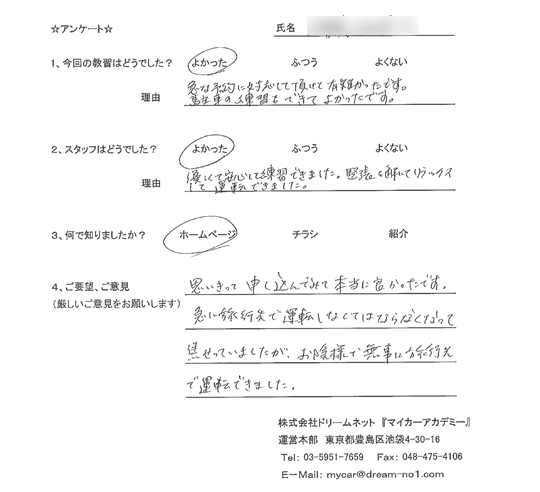 ☆アンケート☆
氏名
1、今回の教習はどうでした？ よかった ふつう よくない
急な予約に対応して頂けて有難かったです。
理由 駐車の練習もできてよかったです。
2、スタッフはどうでした？ よかった ふつう よくない
優しくて安心して練習できました。緊張も解けてリラックス
理由 して運転できました。
3、何で知りましたか？ ホームページ チラシ 紹介
4、ご要望、ご意見 思いきって申し込んでみて本当に良かったです。
(厳しいご意見をお願いします)
急に旅行先で運転しなくてはならなくなって
焦せっていましたが、お陰様で無事に旅行先
で運転できました。
株式会社ドリームネット 『マイカーアカデミー』
運営本部 東京都豊島区池袋4-30-16
Tel: 03-5951-7659 Fax: 048-475-4106
E－Mail: mycar@dream-no1.com